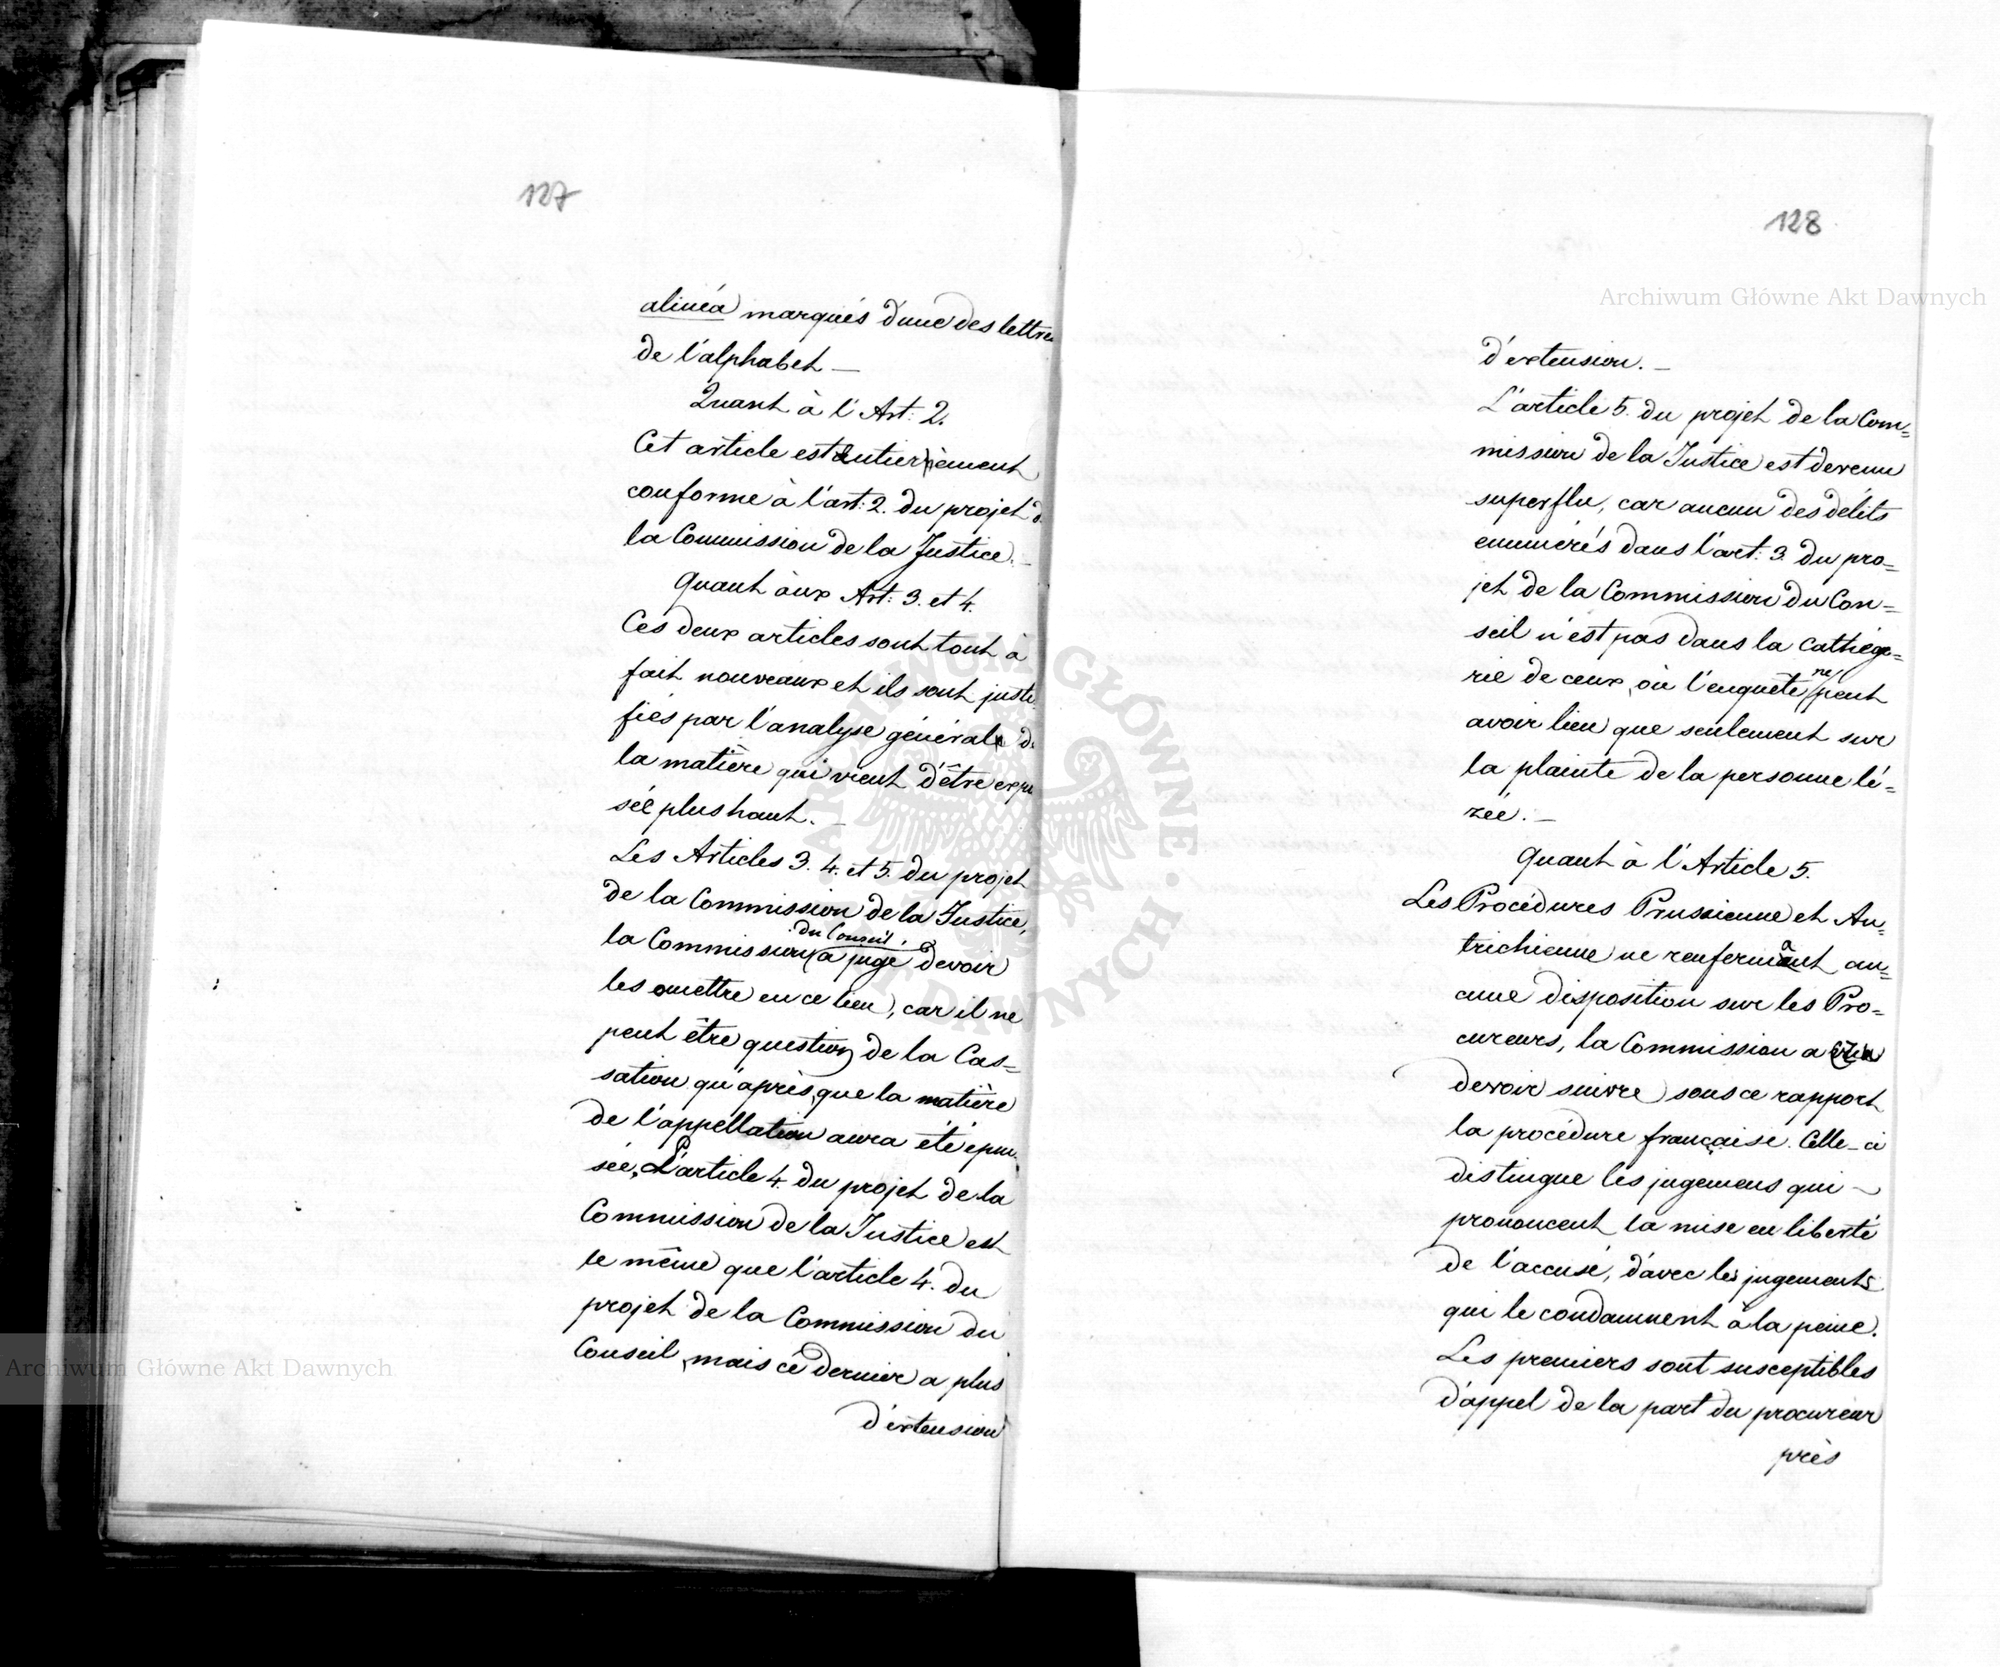 127
alinéa marqués d'une des lettres
de l'alphabet —
Quant à l'Art: 2.
Cet article est entierèment
conforme à l'art: 2. du projet d
la Commission de la Justice. —
Quant àux Art: 3. et 4.
Ces deux articles sont tout à
fait nouveaux et ils sont justi
fiés par l'analyse général de
la matière qui vient d'être expo
sée plus haut. —
Les Articles 3. 4. et 5. du projet
de la Commission de la Justice,
du Conseil,
la Commission a jugé devoir
les omettre en ce lieu, car il ne
peut être question de la Cas=
sation qu'après que la matière
de l'appellation aura été épui
sée, L'article 4. du projet de la
Commission de la Justice est
le même que l'article 4. du
projet de la Commission du
Conseil, mais ce dernier a plus
d'extension
128
d'extension. —
L'article 5. du projet de la Com=
mission de la Justice est devenu
superflu, car aucun des délits
enumérés dans l'art: 3. du pro=
jet de la Commission du Con=
seil n'est pas dans la cathégo=
rie de ceux, où l'enquête ne peut
avoir lieu que seulement sur
la plainte de la personne lé=
zée. —
Quant à l'Article 5.
Les Procédures Prussienne et Au=
trichienne ne renfermant au=
cune disposition sur les Pro=
cureurs, la Commission a cru
devoir suivre sous ce rapport
la procédure française. Celle-ci
distingue les jugemens qui —
prononcent la mise en liberté
de l'accusé, d'avec les jugements
qui le condamnent à la peine.
Les premiers sont susceptibles
d'appel de la part du procureur
près
Archiwum Główne Akt Dawnych
Archiwum Główne Akt Dawnych
ARCHIWUM GŁÓWNE · AKT DAWNYCH ·